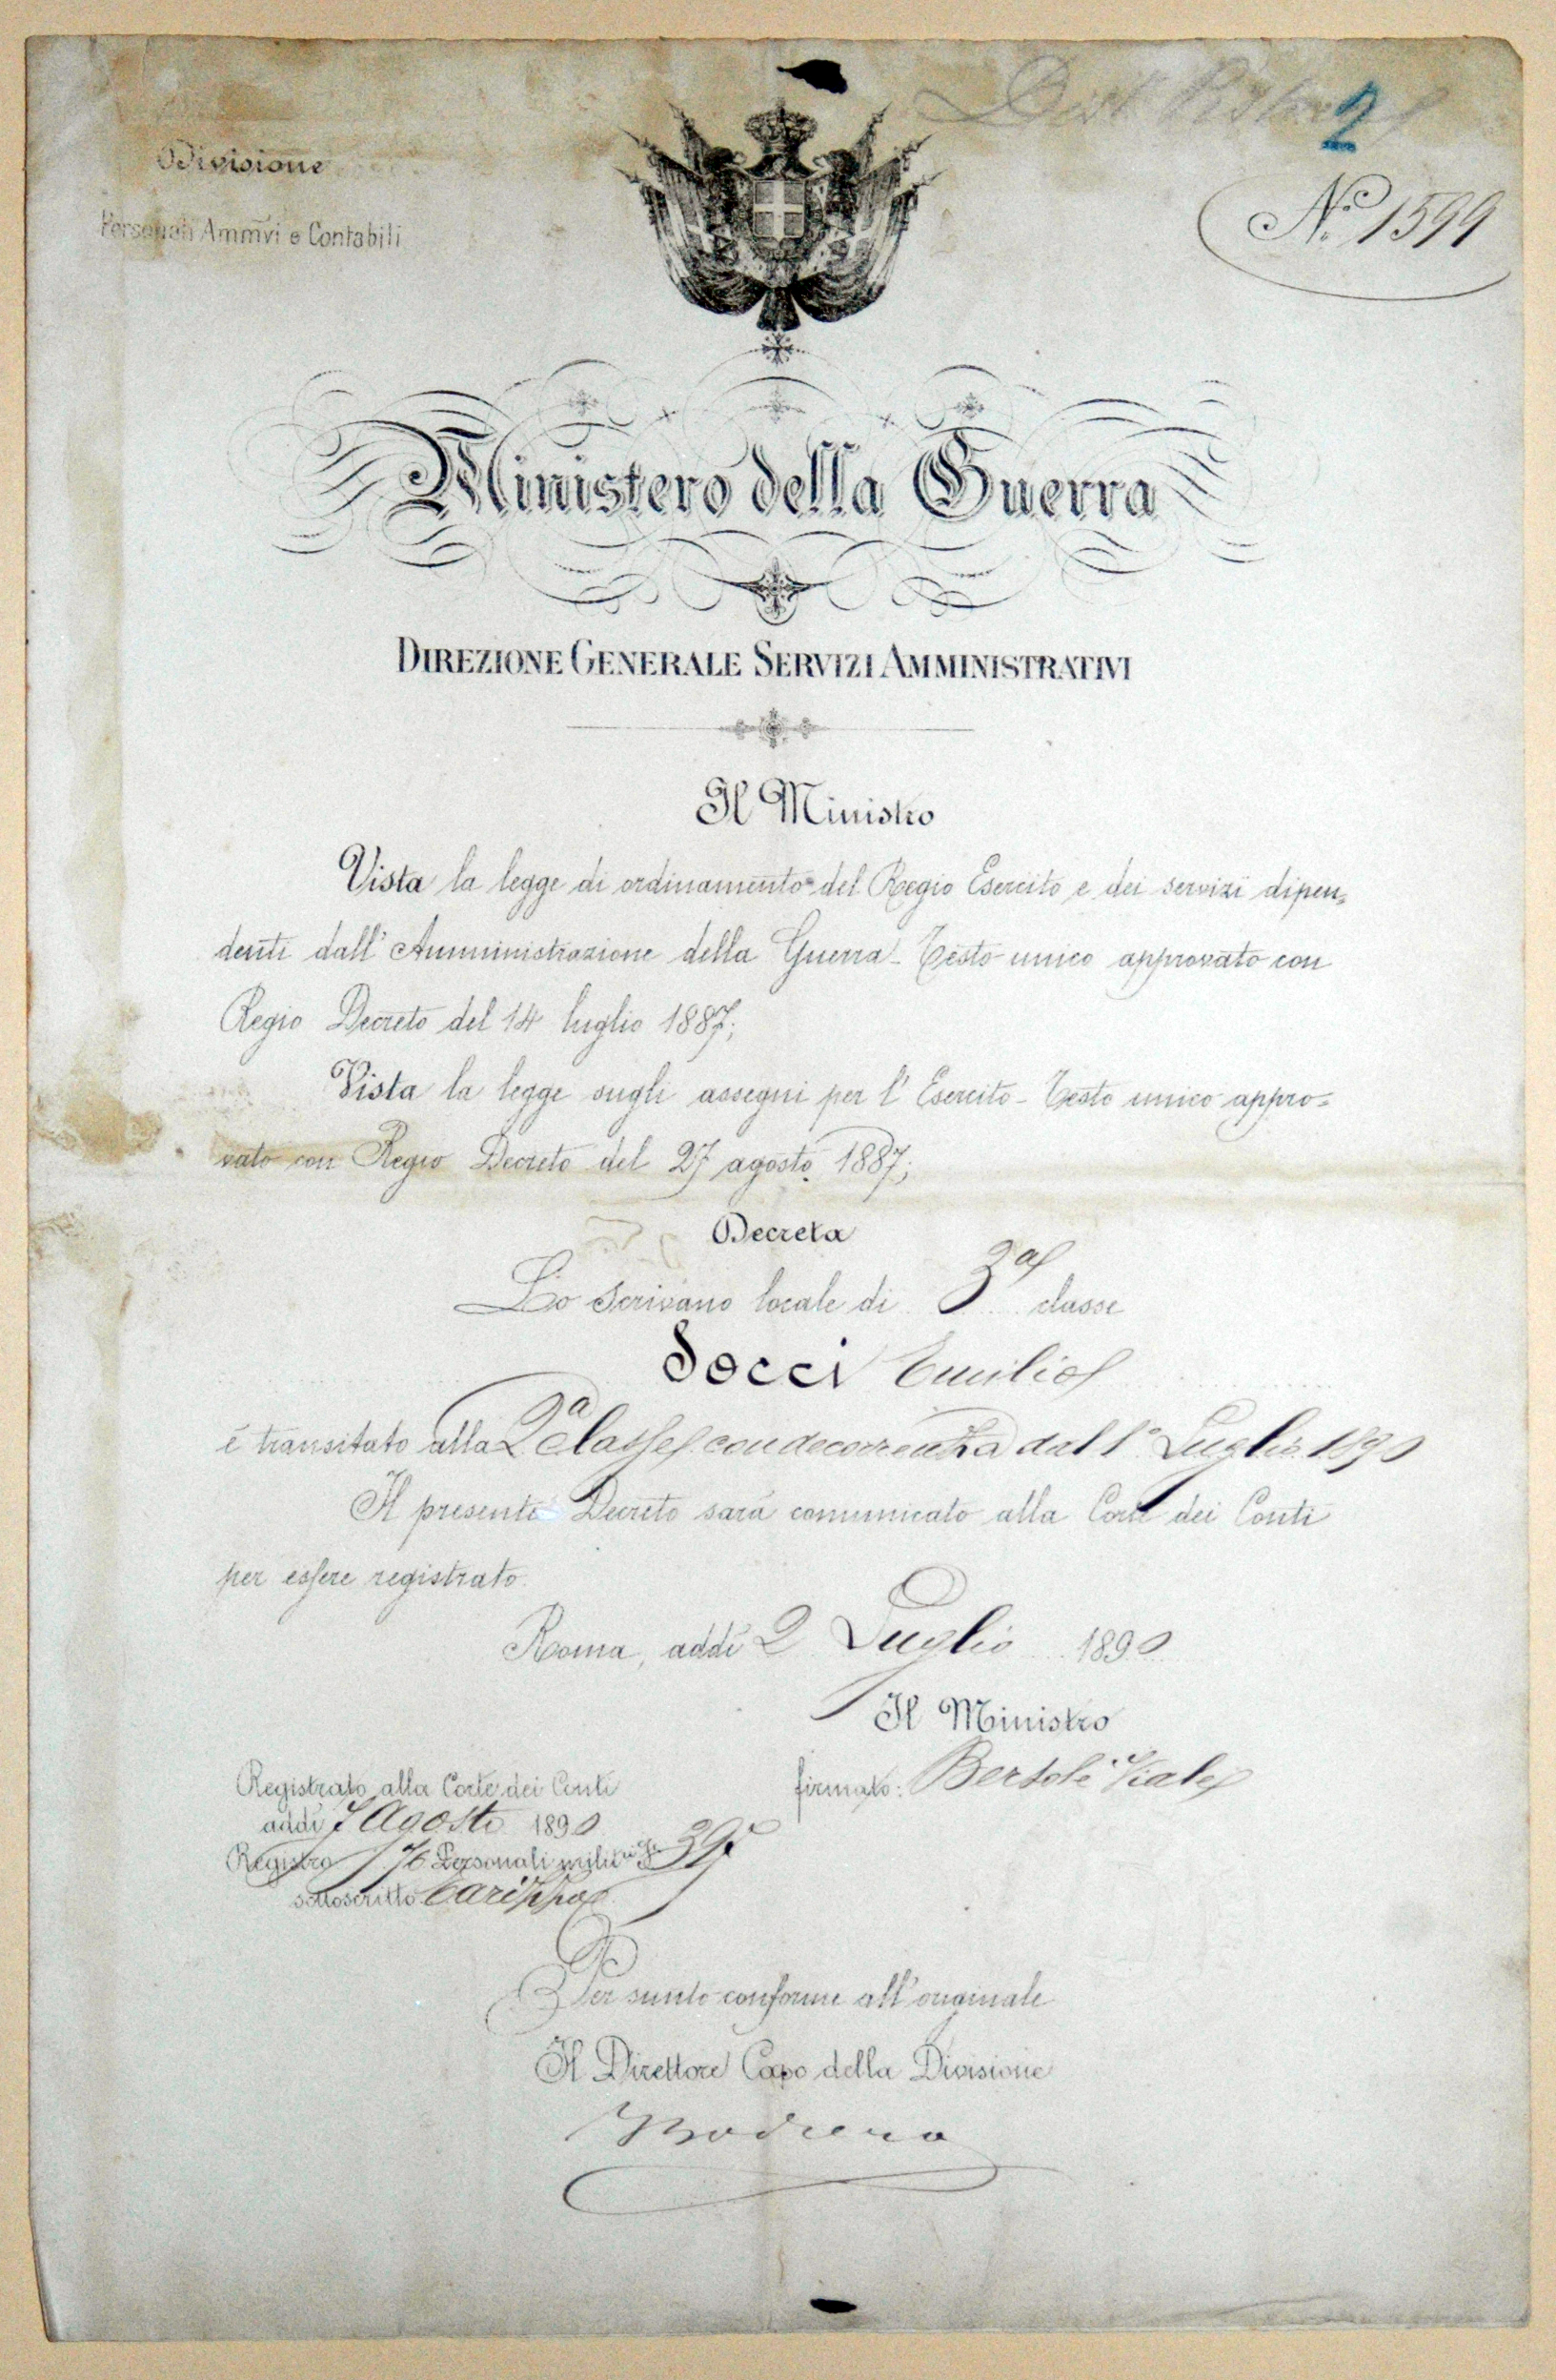 2
Divisione
Personali Ammvi e Contabili
N.° 1599
Ministero della Guerra
DIREZIONE GENERALE SERVIZI AMMINISTRATIVI
Il Ministro
Vista la legge di ordinamento del Regio Esercito e dei servizi dipen=
denti dall' Amministrazione della Guerra - Testo unico approvato con
Regio Decreto del 14 luglio 1887;
Vista la legge sugli assegni per l' Esercito - Testo unico appro=
vato con Regio Decreto del 27 agosto 1887;
Decreta
Lo Scrivano locale di 3a classe
Socci Emilio
è transitato alla 2a classe con decorrenza dal 1° Luglio 1890
Il presente Decreto sarà comunicato alla Corte dei Conti
per essere registrato.
Roma, addì 2 Luglio 1890
Il Ministro
firmato: Bertolè Viale
Registrato alla Corte dei Conti
addì 7 Agosto 1890
Registro 176 Personali milit
sottoscritto
Per sunto conforme all' originale
Il Direttore Capo della Divisione